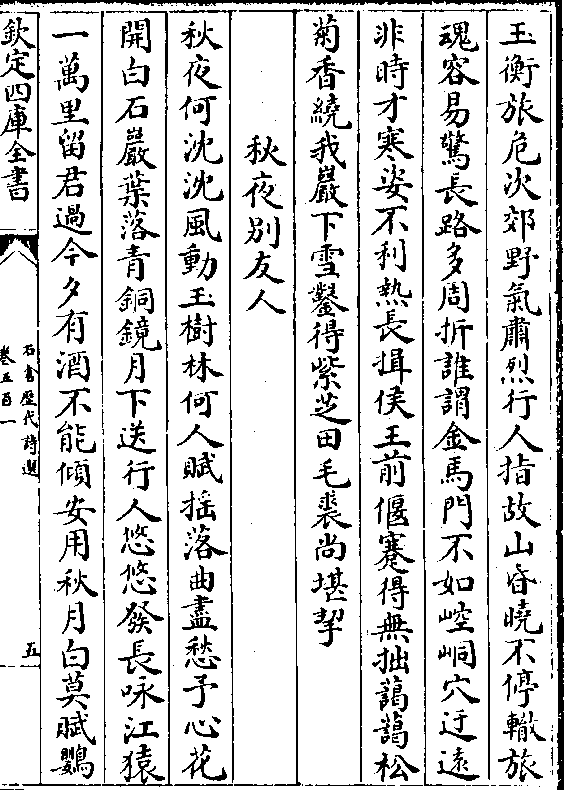 玉衡旅危次郊野氣肅烈行人指故山昏曉不停轍旅
魂容易驚長路多周折誰謂金馬門不如崆峒穴迂遠
非時才寒姿不利熱長揖侯王前偃蹇得無拙藹藹松
菊香繞我巖下雪鑿得紫芝田毛裘尚堪挈
秋夜別友人
秋夜何沈沈風動玉樹林何人賦揺落曲盡愁予心花
開白石巖葉落青銅鏡月下送行人悠悠發長咏江猿
一萬里留君過今夕有酒不能傾安用秋月白莫賦鸚
欽定四庫全書
石倉歷代詩選
卷五百一
五